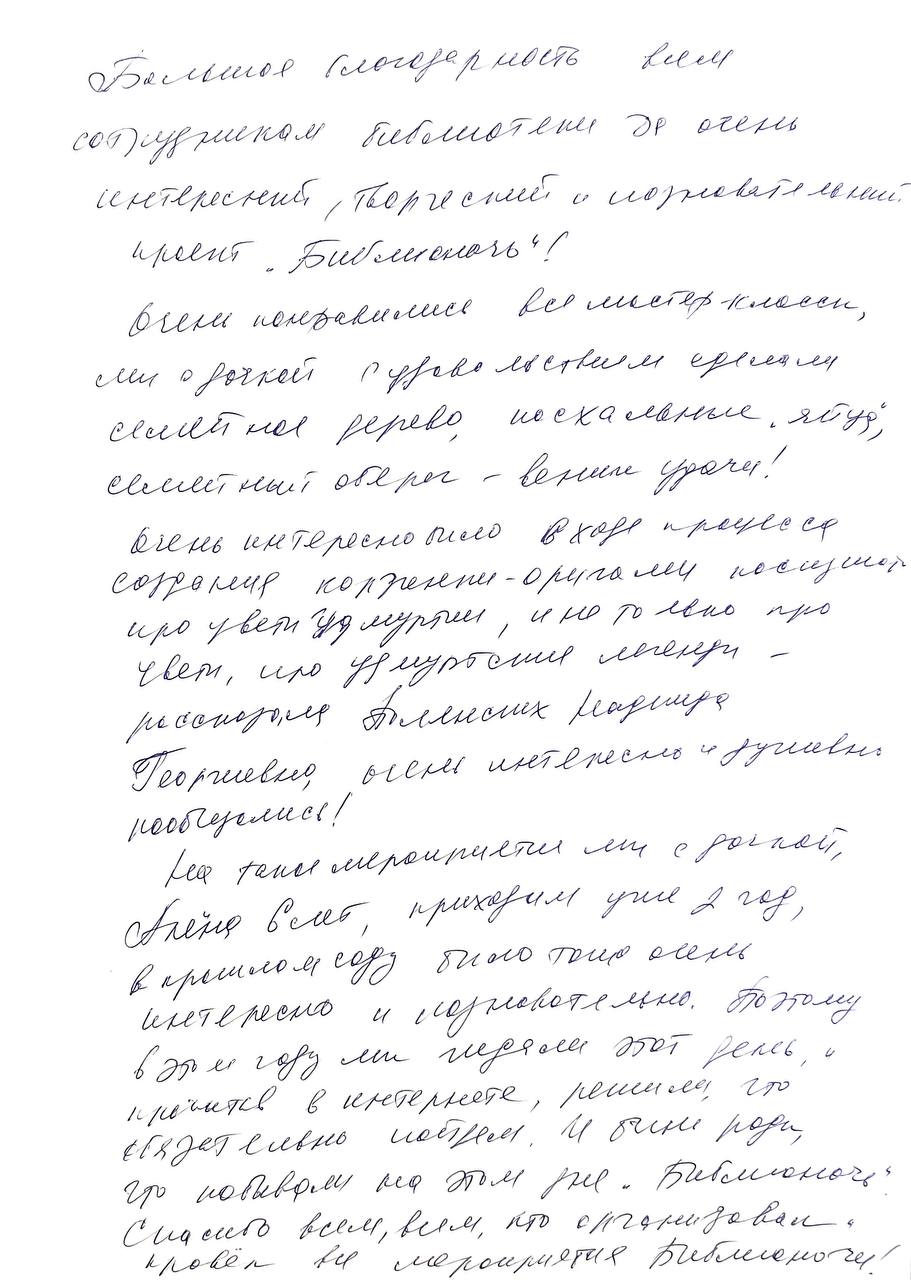 Большая благодарность всем
сотрудникам библиотеки за очень
интересный, творческий и познавательный
проект „Библионочь“!
Очень понравились все мастер-классы,
мы с дочкой с удовольствием сделали
семейное дерево, пасхальные „яйца“,
семейный оберег – веник удачи!
Очень интересно было в ходе процесса
создания корзинки-оригами послушать
про цветы Удмуртии, и не только про
цветы, про удмуртские легенды –
рассказала Надежда
Георгиевна, очень интересно и душевно
пообщались!
На такое мероприятие мы с дочкой,
Алёна 6 лет, приходим уже 2 год,
в прошлом году было тоже очень
интересно и познавательно. Поэтому
в этом году мы ждали этот день, и
прочитав в интернете, решили, что
обязательно пойдем. И были рады,
что побывали на этом дне „Библионочь“.
Спасибо всем, всем, кто организовал и
провёл все мероприятия Библионочи!